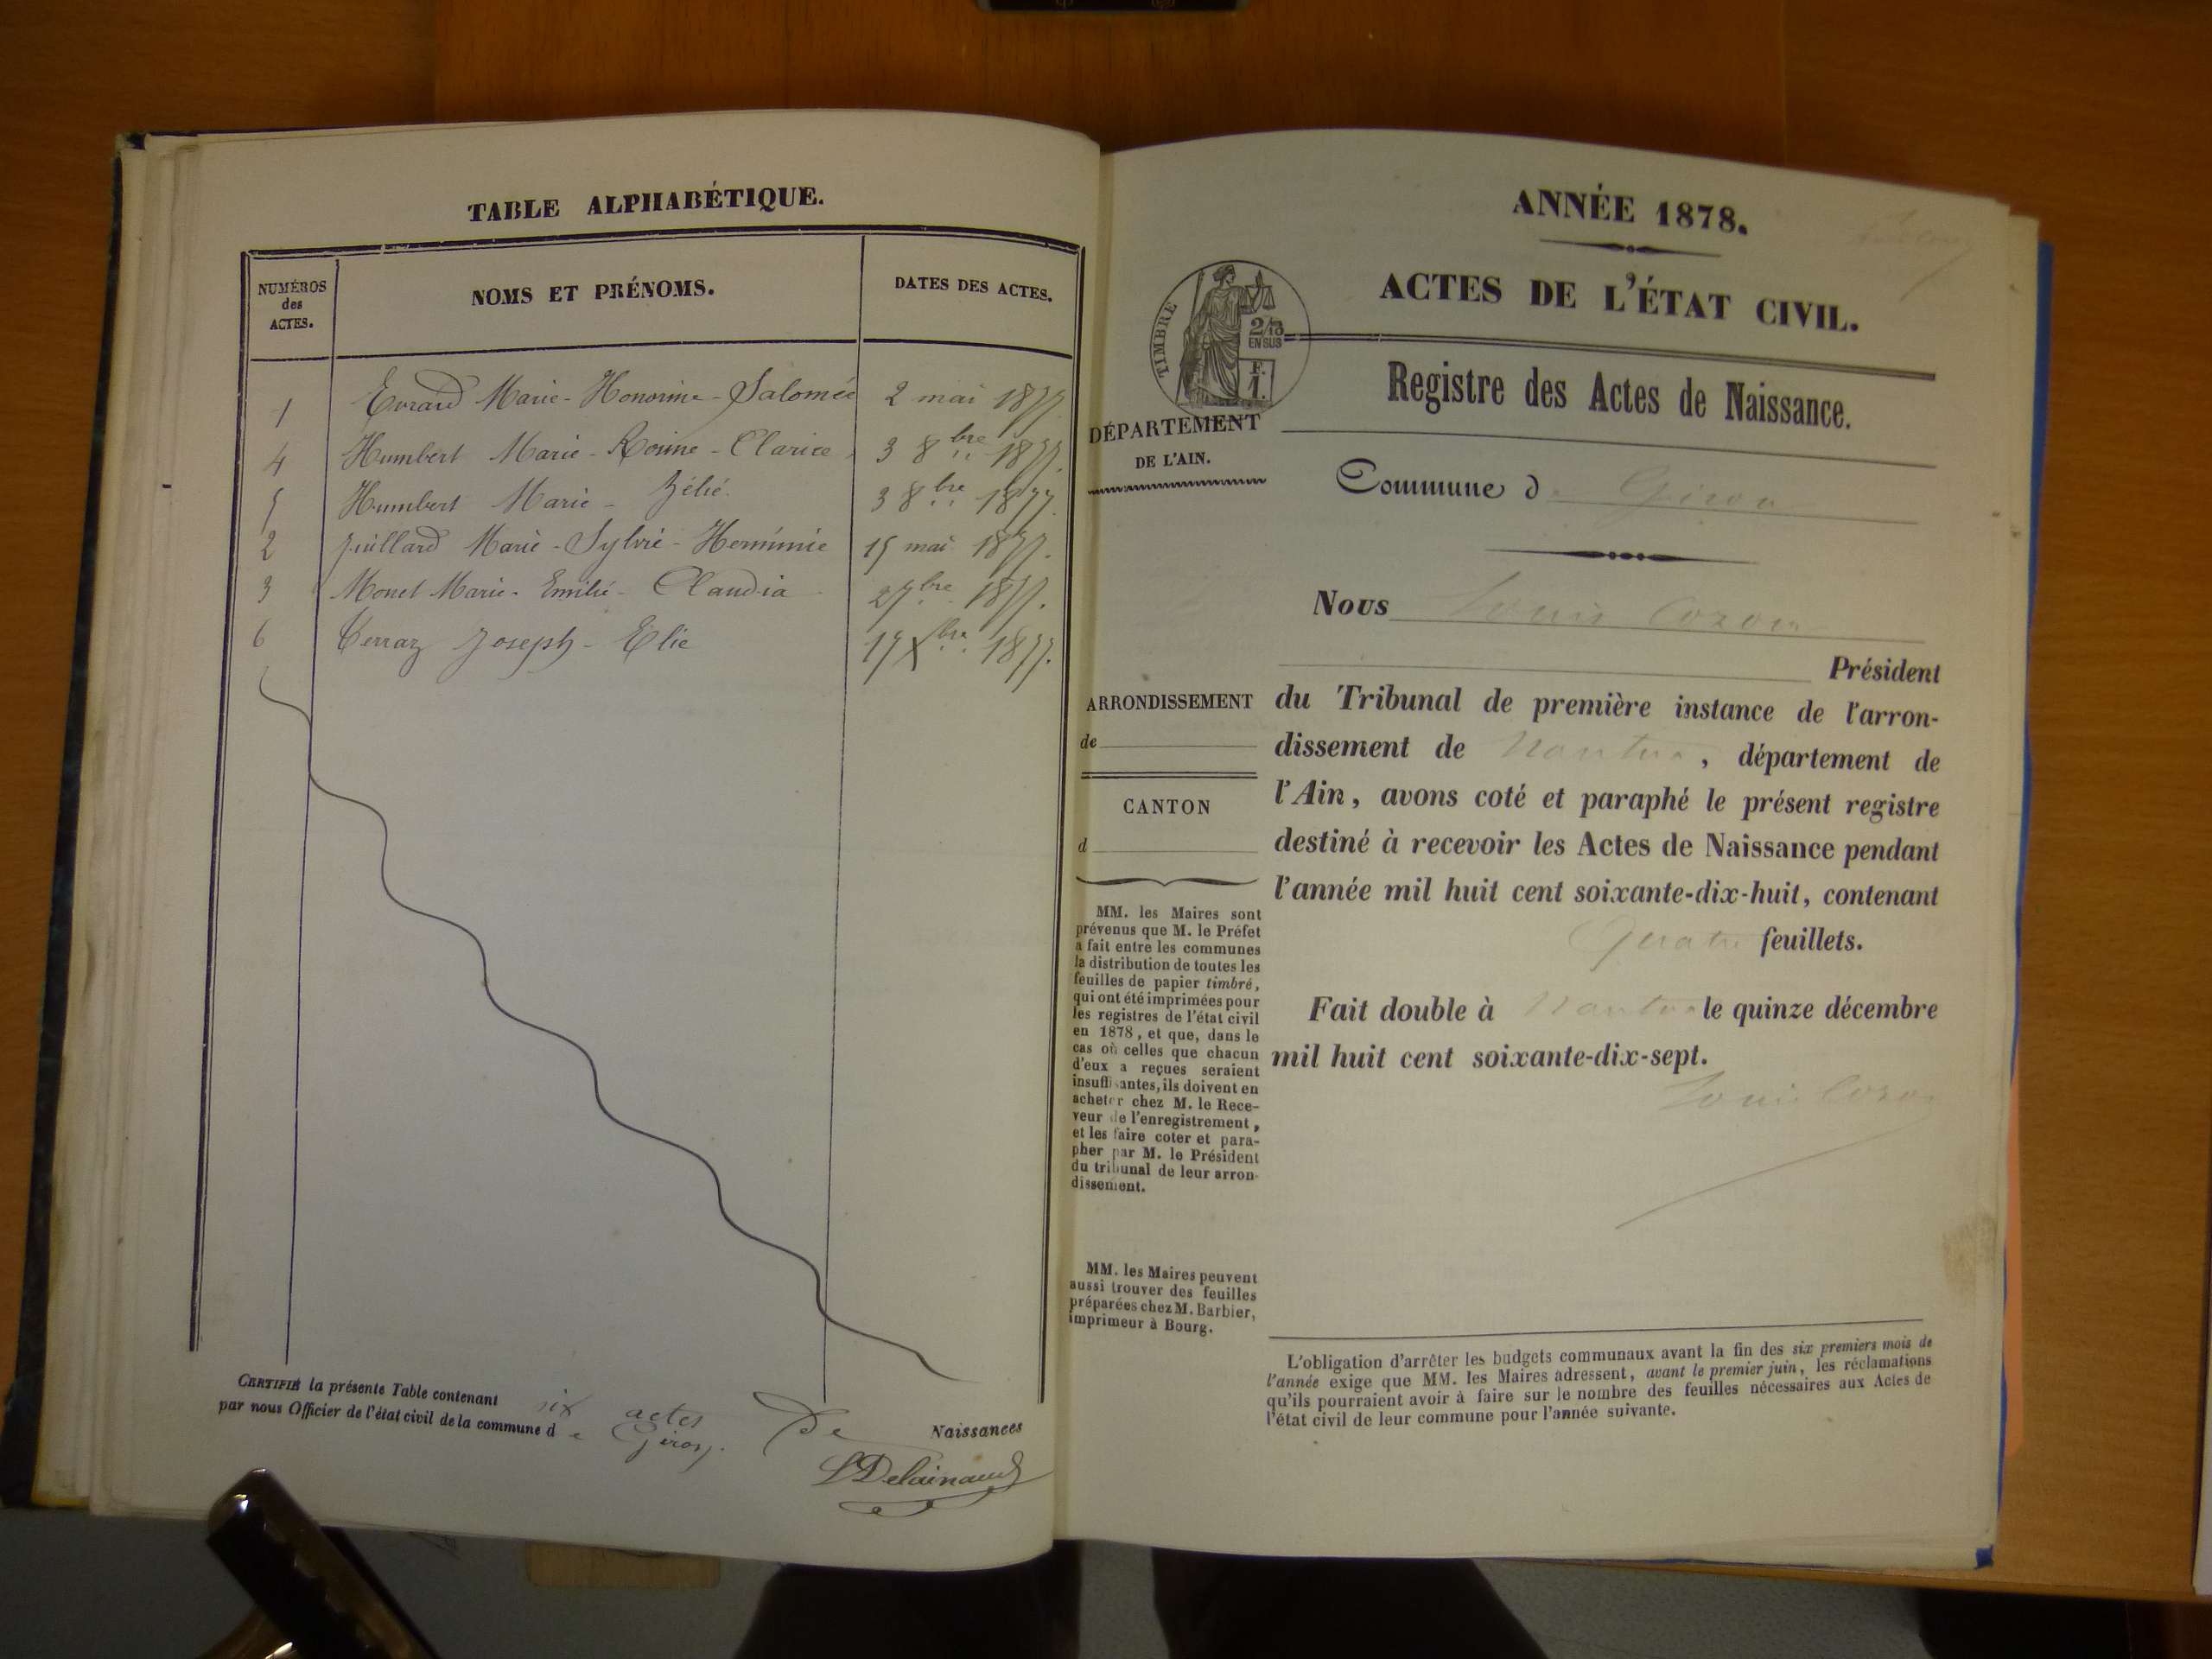 TABLE ALPHABÉTIQUE.
NUMÉROS des ACTES.
NOMS ET PRÉNOMS.
DATES DES ACTES.
1 Evrard Marie-Honorine-Salomée 2 mai 1877.
4 Humbert Marie-Rosine-Clarice 3 8bre 1877.
5 Humbert Marie-Zélié. 3 8bre 1877.
2 Juillard Marie-Sylvie-Herminie 15 mai 1877.
3 Monet Marie-Emilié-Claudia 2 7bre 1877.
6 Perraz Joseph-Elie 17 Xbre 1877.
CERTIFIÉ la présente Table contenant six actes De Naissances
par nous Officier de l'état civil de la commune de Giron.
ANNÉE 1878.
ACTES DE L'ÉTAT CIVIL.
TIMBRE
2/10
EN SUS
F.
1.
DÉPARTEMENT
DE L'AIN.
Registre des Actes de Naissance.
Commune de Giron
Nous Louis Cozon
Président
ARRONDISSEMENT
de
CANTON
d
du Tribunal de première instance de l'arron-
dissement de Nantua, département de
l'Ain, avons coté et paraphé le présent registre
destiné à recevoir les Actes de Naissance pendant
l'année mil huit cent soixante-dix-huit, contenant
Quatre feuillets.
Fait double à Nantua le quinze décembre
mil huit cent soixante-dix-sept.
Louis Cozon
MM. les Maires sont
prévenus que M. le Préfet
a fait entre les communes
la distribution de toutes les
feuilles de papier timbré,
qui ont été imprimées pour
les registres de l'état civil
en 1878, et que, dans le
cas où celles que chacun
d'eux a reçues seraient
insuffisantes, ils doivent en
acheter chez M. le Rece-
veur de l'enregistrement,
et les faire coter et para-
pher par M. le Président
du tribunal de leur arron-
dissement.
MM. les Maires peuvent
aussi trouver des feuilles
préparées chez M. Barbier,
imprimeur à Bourg.
L'obligation d'arrêter les budgets communaux avant la fin des six premiers mois de
l'année exige que MM. les Maires adressent, avant le premier juin, les réclamations
qu'ils pourraient avoir à faire sur le nombre des feuilles nécessaires aux Actes de
l'état civil de leur commune pour l'année suivante.